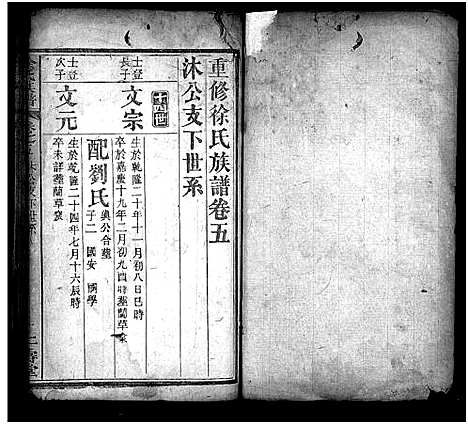 重修徐氏族譜卷五
沐公支下世系
十四世
士登長子
文宗
生於乾隆二十年十一月初八日巳時
卒於嘉慶十九年二月初九酉時葬蘭草
配劉氏
與公合葬
子二 國安 國學
士登次子
文元
生於乾隆二十四年七月十六辰時
卒未詳葬蘭草
沐公支下世系